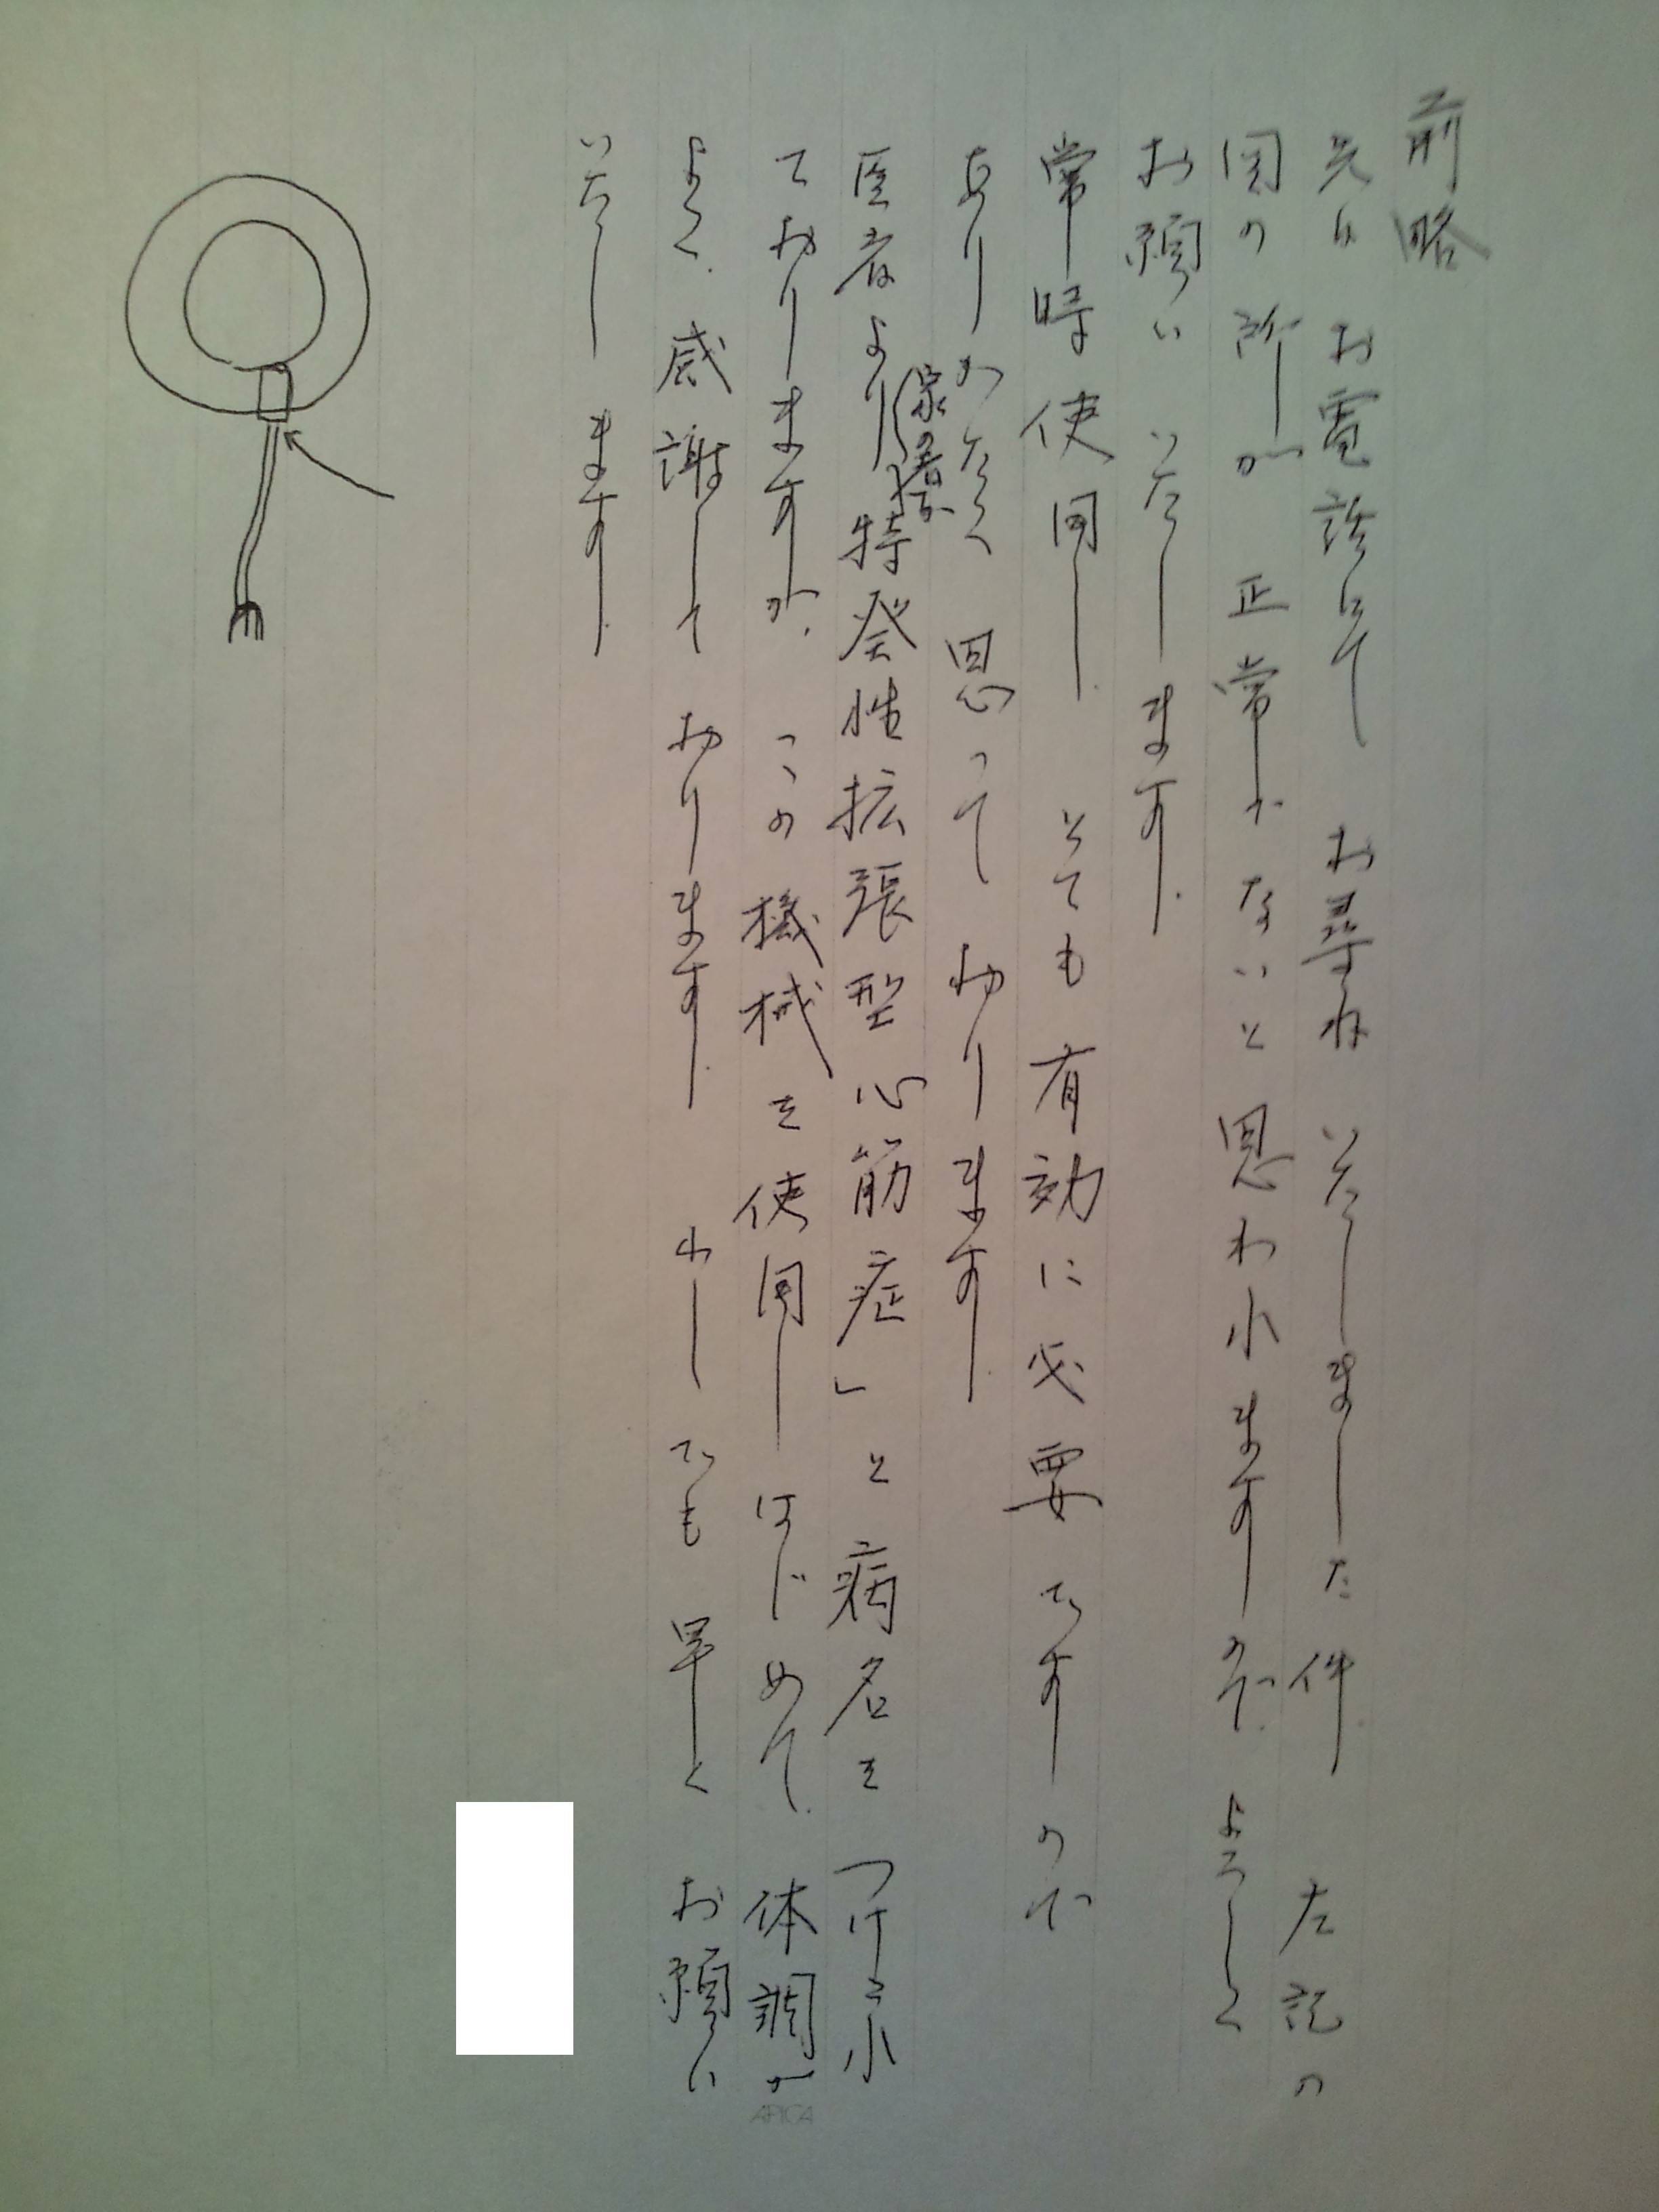 前略
先日 お電話にて お尋ね いたしました件 左記の
図の所が 正常かないと思われますので よろしく
お願い いたします
常時使用し とても有効に必要ですので
ありがたく思って おります
医者より 特発性拡張型心筋症」と病名を つけられ
ておりますが、この機械を使用しはじめて 体調が
よく、感謝して おります 少しでも早く お願い
いたします
APICA